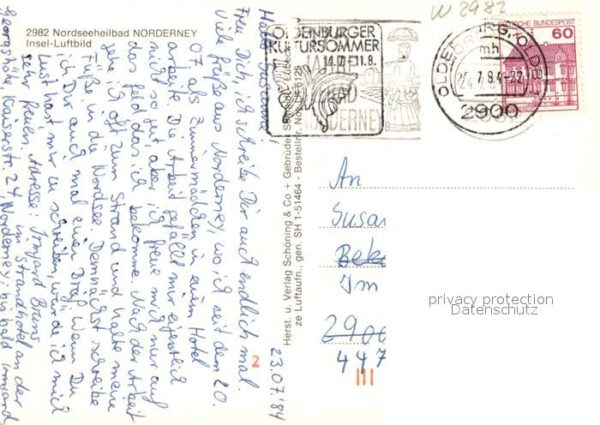 2982 Nordseeheilbad NORDERNEY
Insel-Luftbild
W 2982
OLDENBURGER
KULTURSOMMER
OLDENBURG, OLDB
mh
2900
DEUTSCHE BUNDESPOST
60
Herst. u. Verlag Schöning & Co + Gebrüder
ze Luftaufn., gen. SH 1-51464 - Bestellnr.
23.07.84
Freu Dich, ich schreibe Dir auch endlich mal.
Viele Grüße aus Norderney, wo ich seit dem 20.
07. als Zimmermädchen in einem Hotel
arbeite. Die Arbeit gefällt mir eigentlich
nicht so gut, aber ich freue mich nur auf
das Geld das ich bekomme. Nach der Arbeit
gehe ich oft zum Strand und halte meine
Füße in die Nordsee. Demnächst schreibe
ich Dir auch mal einen Brief. Wenn Du
Lust hast mir zu schreiben, würde ich mich
sehr freuen. Adresse: Irmgard
im Strandhotel an der
Georgshöhe, Kaiserstr. 24, Norderney; bis bald Irmgard
An
Susan
Im
2900
447
2
privacy protection
Datenschutz